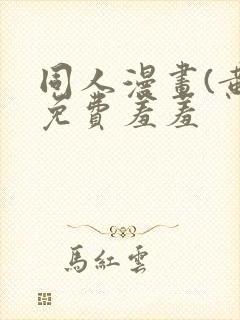 同人漫畫(黃
免費羞羞
馬紅雲